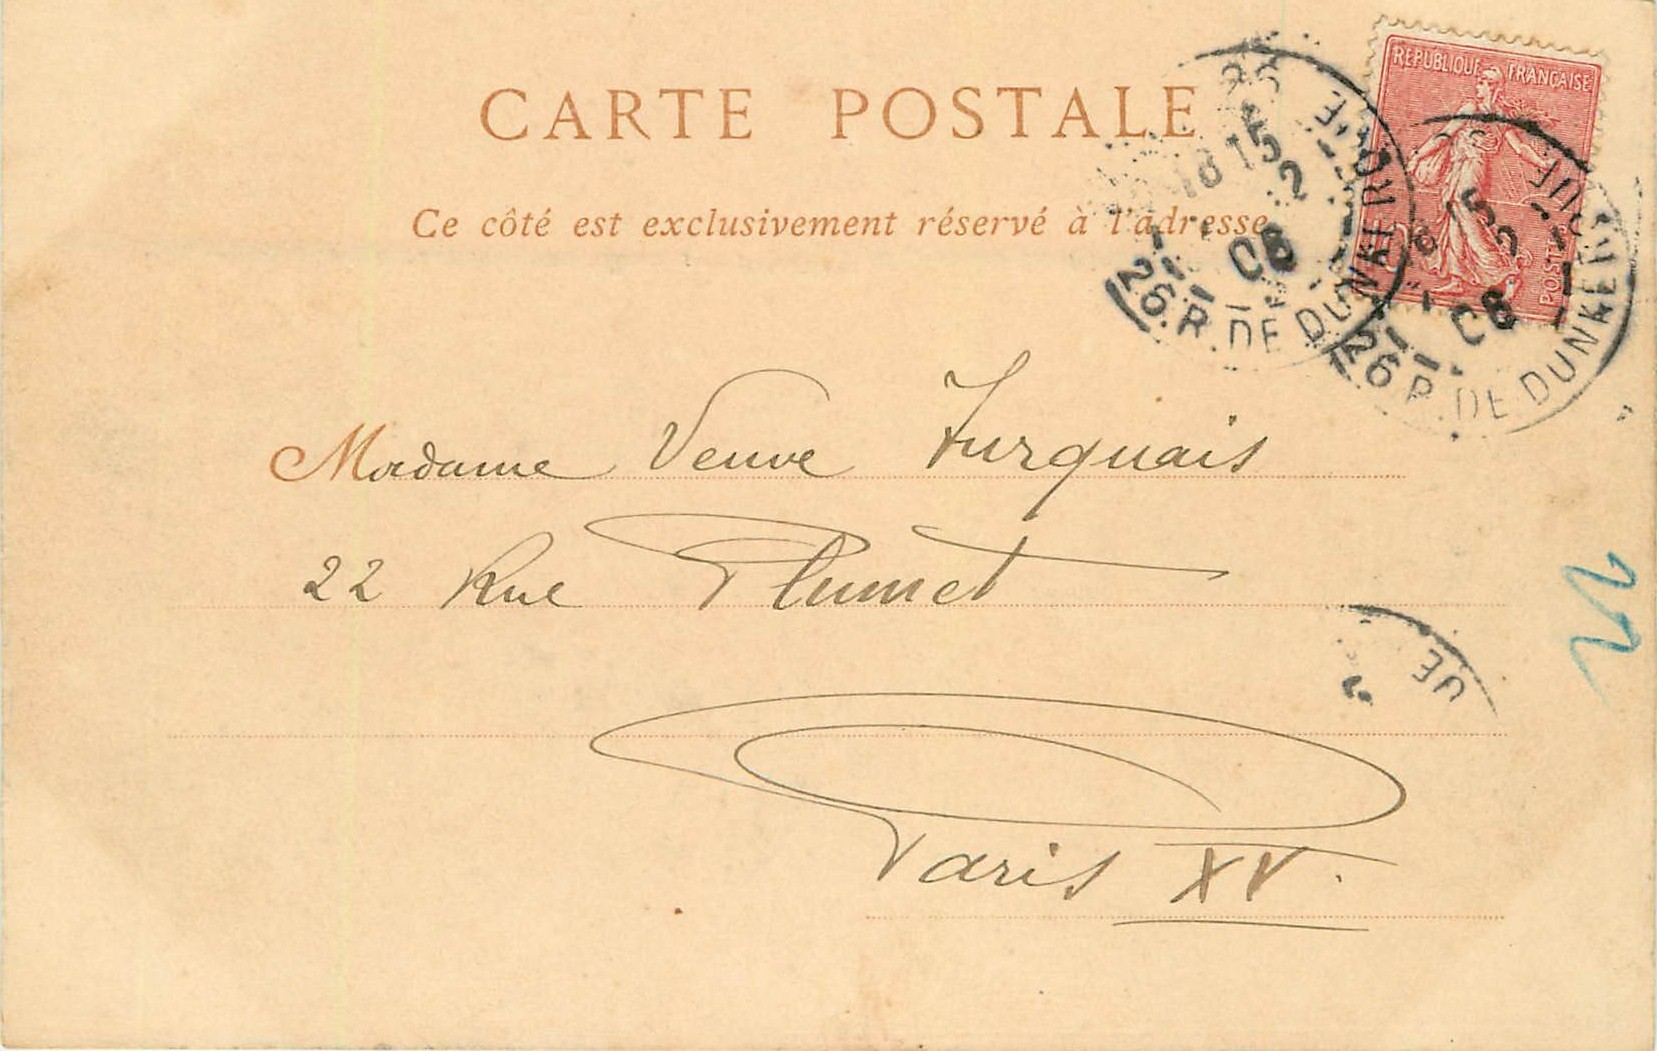 CARTE POSTALE
Ce côté est exclusivement réservé à l'adresse
REPUBLIQUE FRANÇAISE
POSTES
18 15
2
06
26. R. DE DUNKERQUE
15
2
06
26 R. DE DUNKERQUE
Madame Veuve Turquais
22 Rue Plumet
UE
Paris XV.